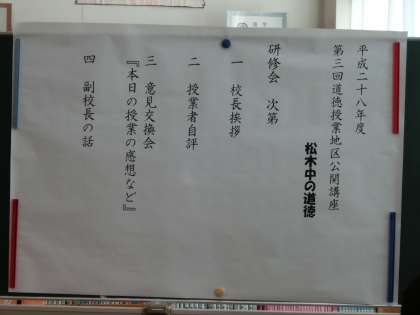 平成二十八年度
第三回道徳授業地区公開講座
松木中の道徳
研修会　次第
一　校長挨拶
二　授業者自評
三　意見交換会
『本日の授業の感想など』
四　副校長の話